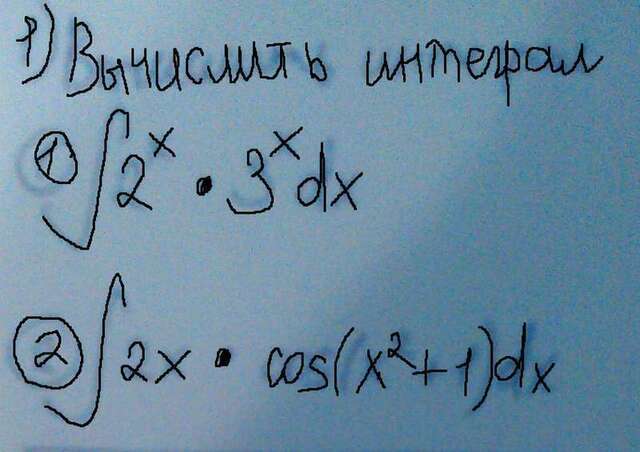 1) Вычислить интеграл
① ∫2ˣ · 3ˣ dx
② ∫2x · cos(x²+1)dx